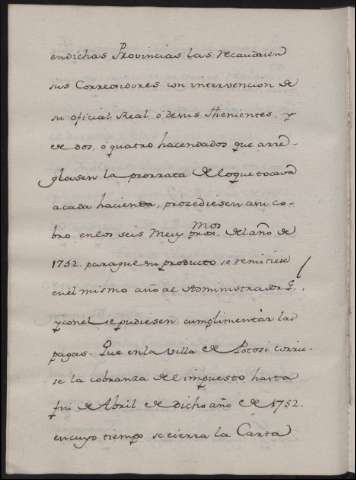 endichas Provincias las recaudasen
sus Corregidores con intervencion de
su oficial Real, ó desus Thenientes, y
de dos, ó quatro hacendados que arre
glasen la prorrata de loque tocava
acada hacienda, procediesen asu co
bro enlos seis meses prims. del año de
1752. paraque su producto se remitiese
enel mismo año al Administrador G.
yconel se pudiesen cumplimentar las
pagas. Que enla villa de Potosi corrie
se la cobranza del impuesto hasta
fin de Abril de dicho año de 1752.
encuyo tiempo se cierra la Carta